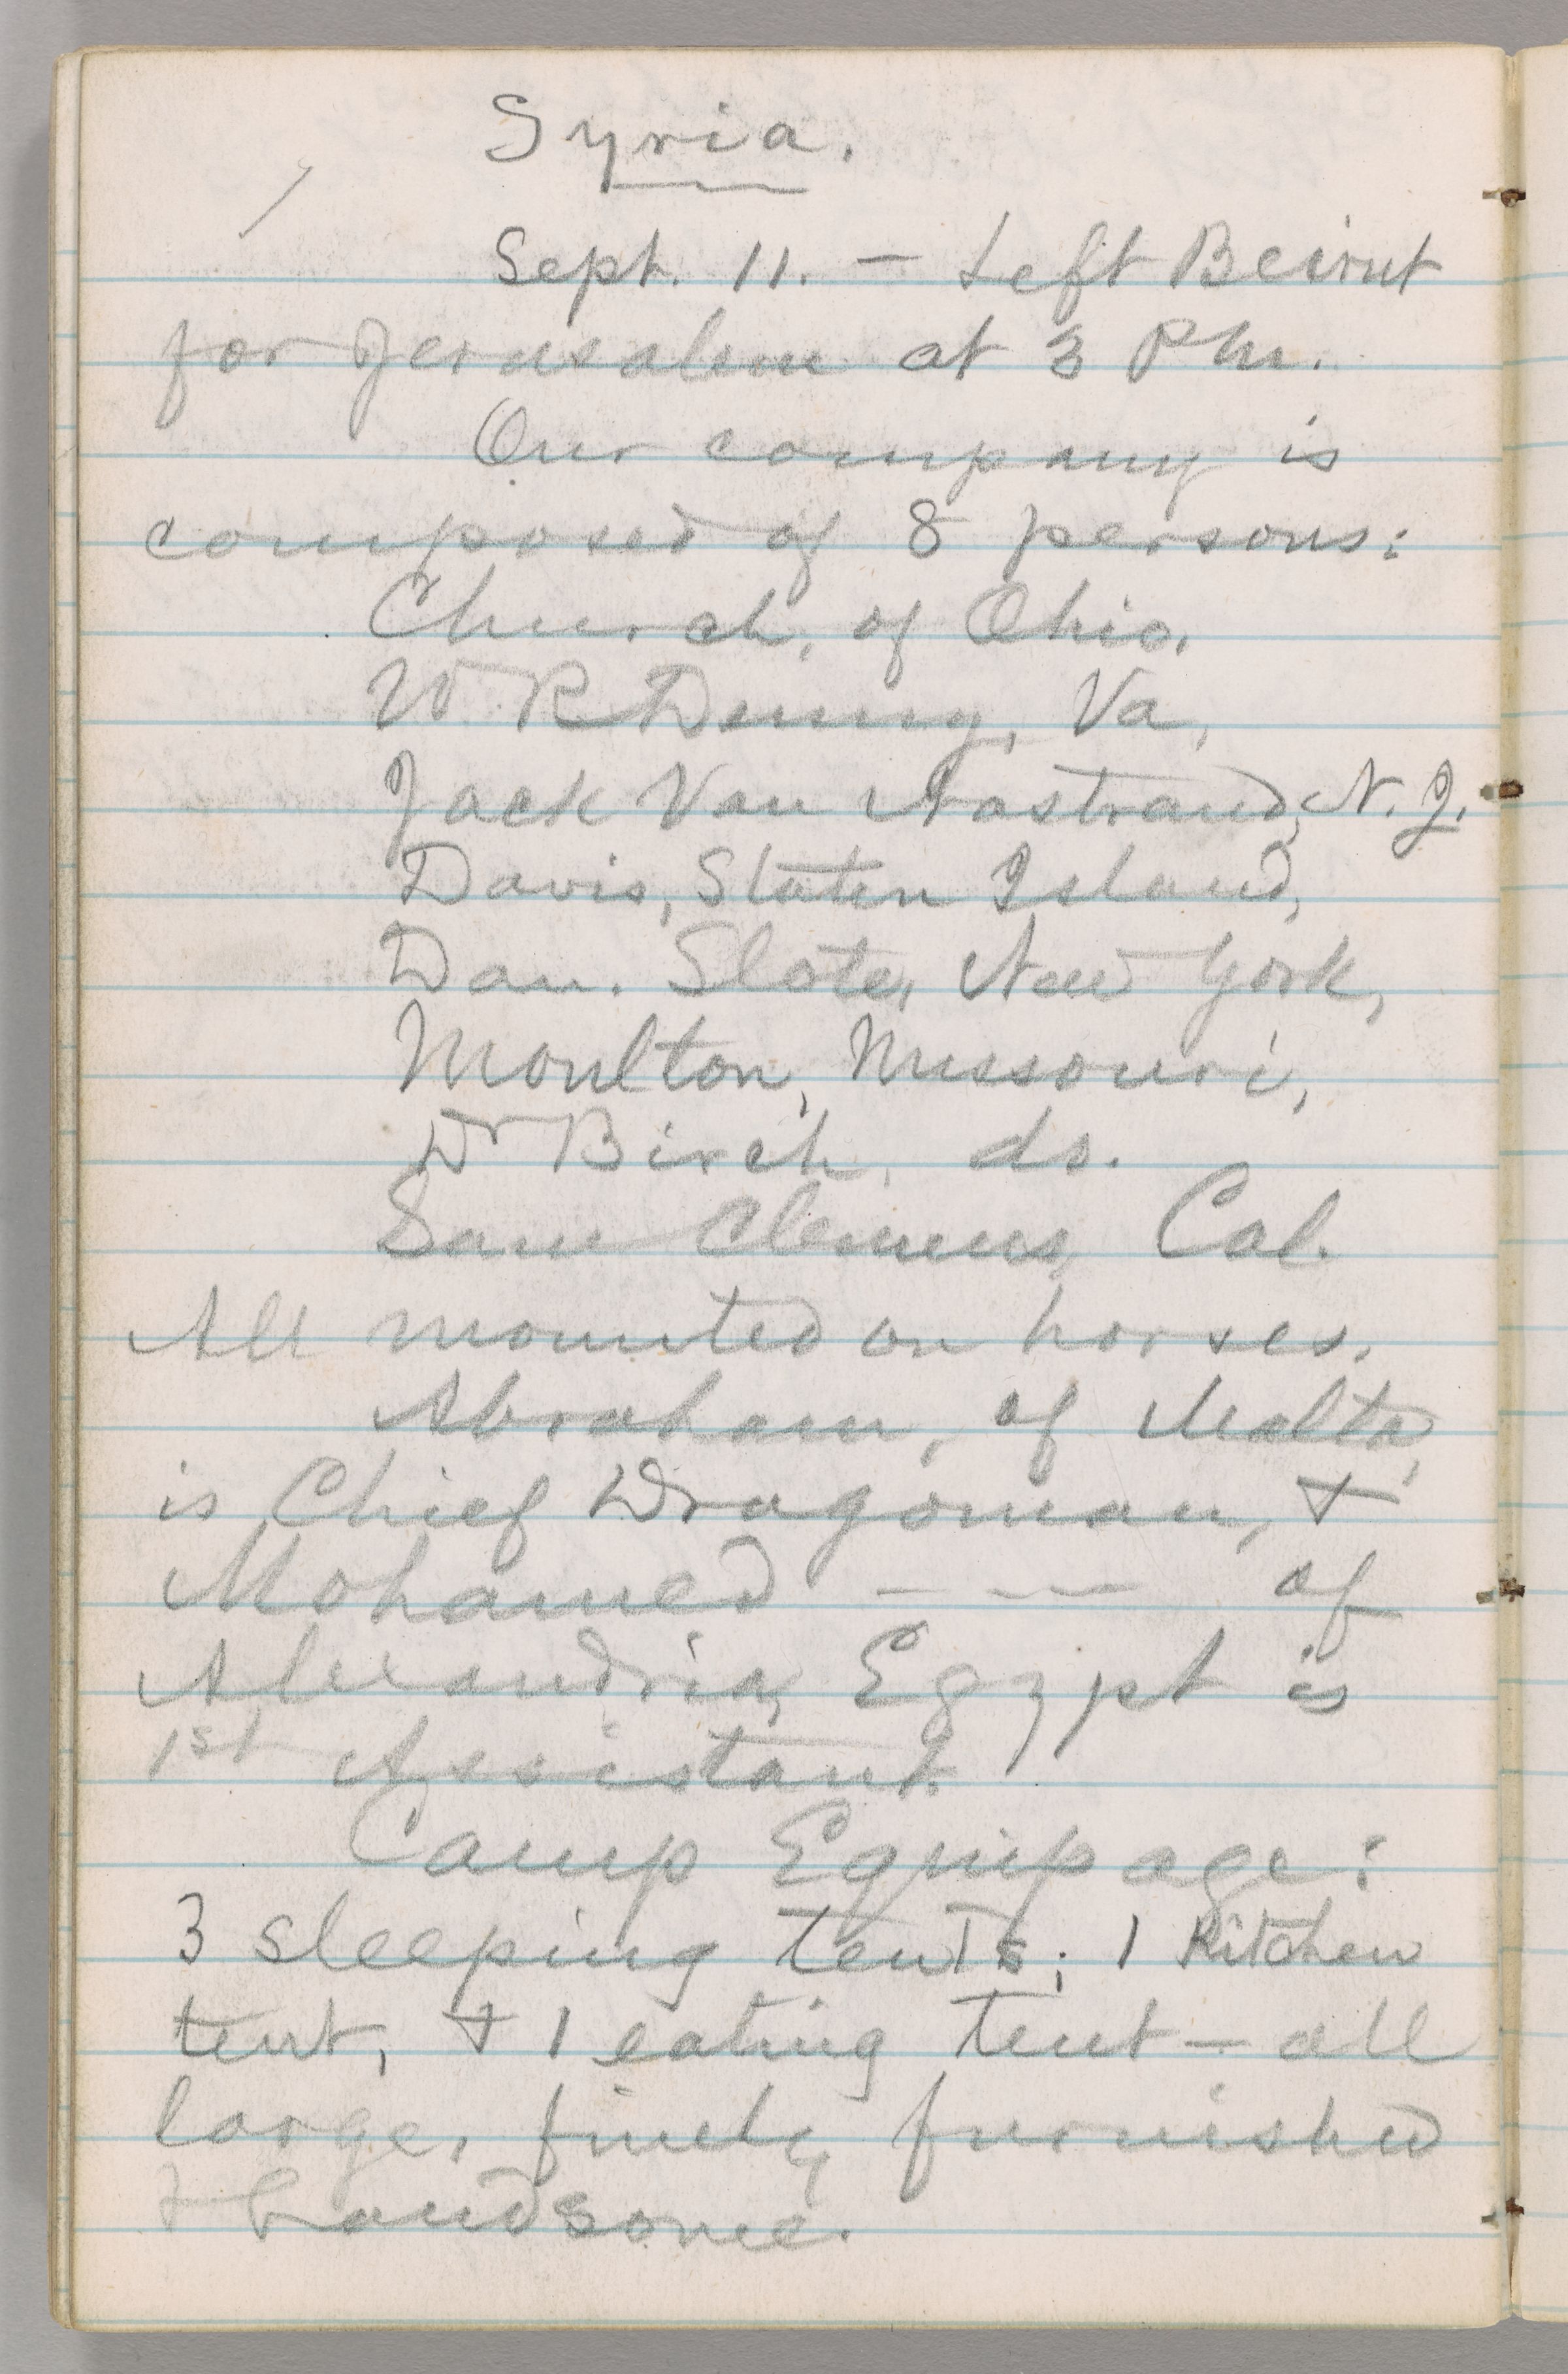 Syria.
Sept. 11. — Left Beirut
for Jerusalem at 3 PM.
Our company is
composed of 8 persons:
Church, of Ohio.
W R Denny, Va,
Jack Van Nostrand, N. J.
Davis, Staten Island,
Dan. Slote, New York,
Moulton, Missouri,
Dr Birch, do.
Sam Clemens, Cal.
All mounted on horses.
Abraham, of Malta,
is Chief Dragoman, &
Mohamed — — — of
Alexandria, Egypt is
1st Assistant.
Camp Equipage:
3 sleeping tents; 1 Kitchen
tent, & 1 eating tent — all
large, finely furnished
& handsome.